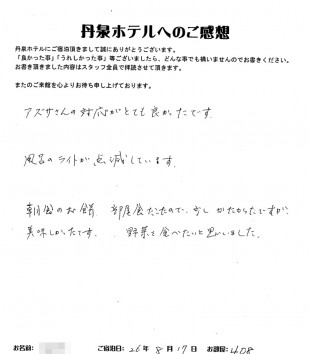 丹泉ホテルへのご感想
丹泉ホテルにご宿泊頂きまして誠にありがとうございます。
「良かった事」「うれしかった事」等ございましたら、どんな事でも構いませんのでお書きください。
お書き頂きました内容はスタッフ全員で拝読させて頂きます。
またのご来館を心よりお待ち申し上げております。
アズサさんの対応がとても良かったです。
風呂のライトが点滅しています。
朝食のお餅 部屋食だったので、少しかたかったですが、
美味しかったです。 野菜を食べたいと思いました。
お名前: ご宿泊日: 26年 8月 17日 お部屋: 408